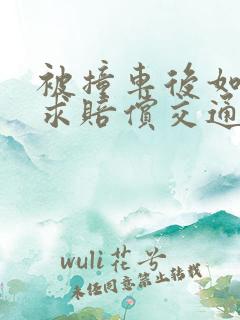 被撞車後如
求賠償交通
wuli花兮
未经同意禁止转载